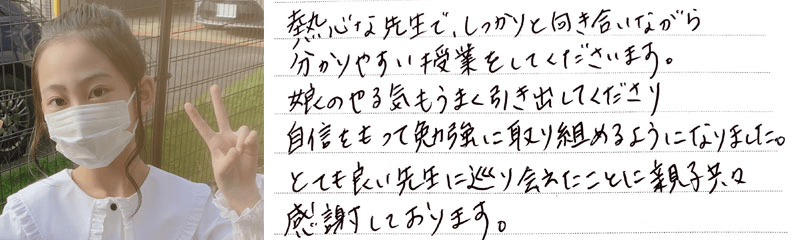 熱心な先生で、しっかりと向き合いながら
分かりやすい授業をしてくださいます。
娘のやる気もうまく引き出してくださり
自信をもって勉強に取り組めるようになりました。
とても良い先生に巡り会えたことに親子共々
感謝しております。